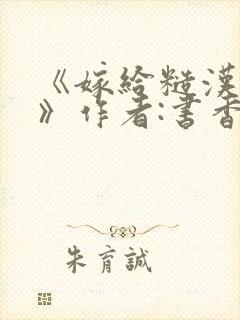 《嫁给糙漢
》作者:書香
朱育誠